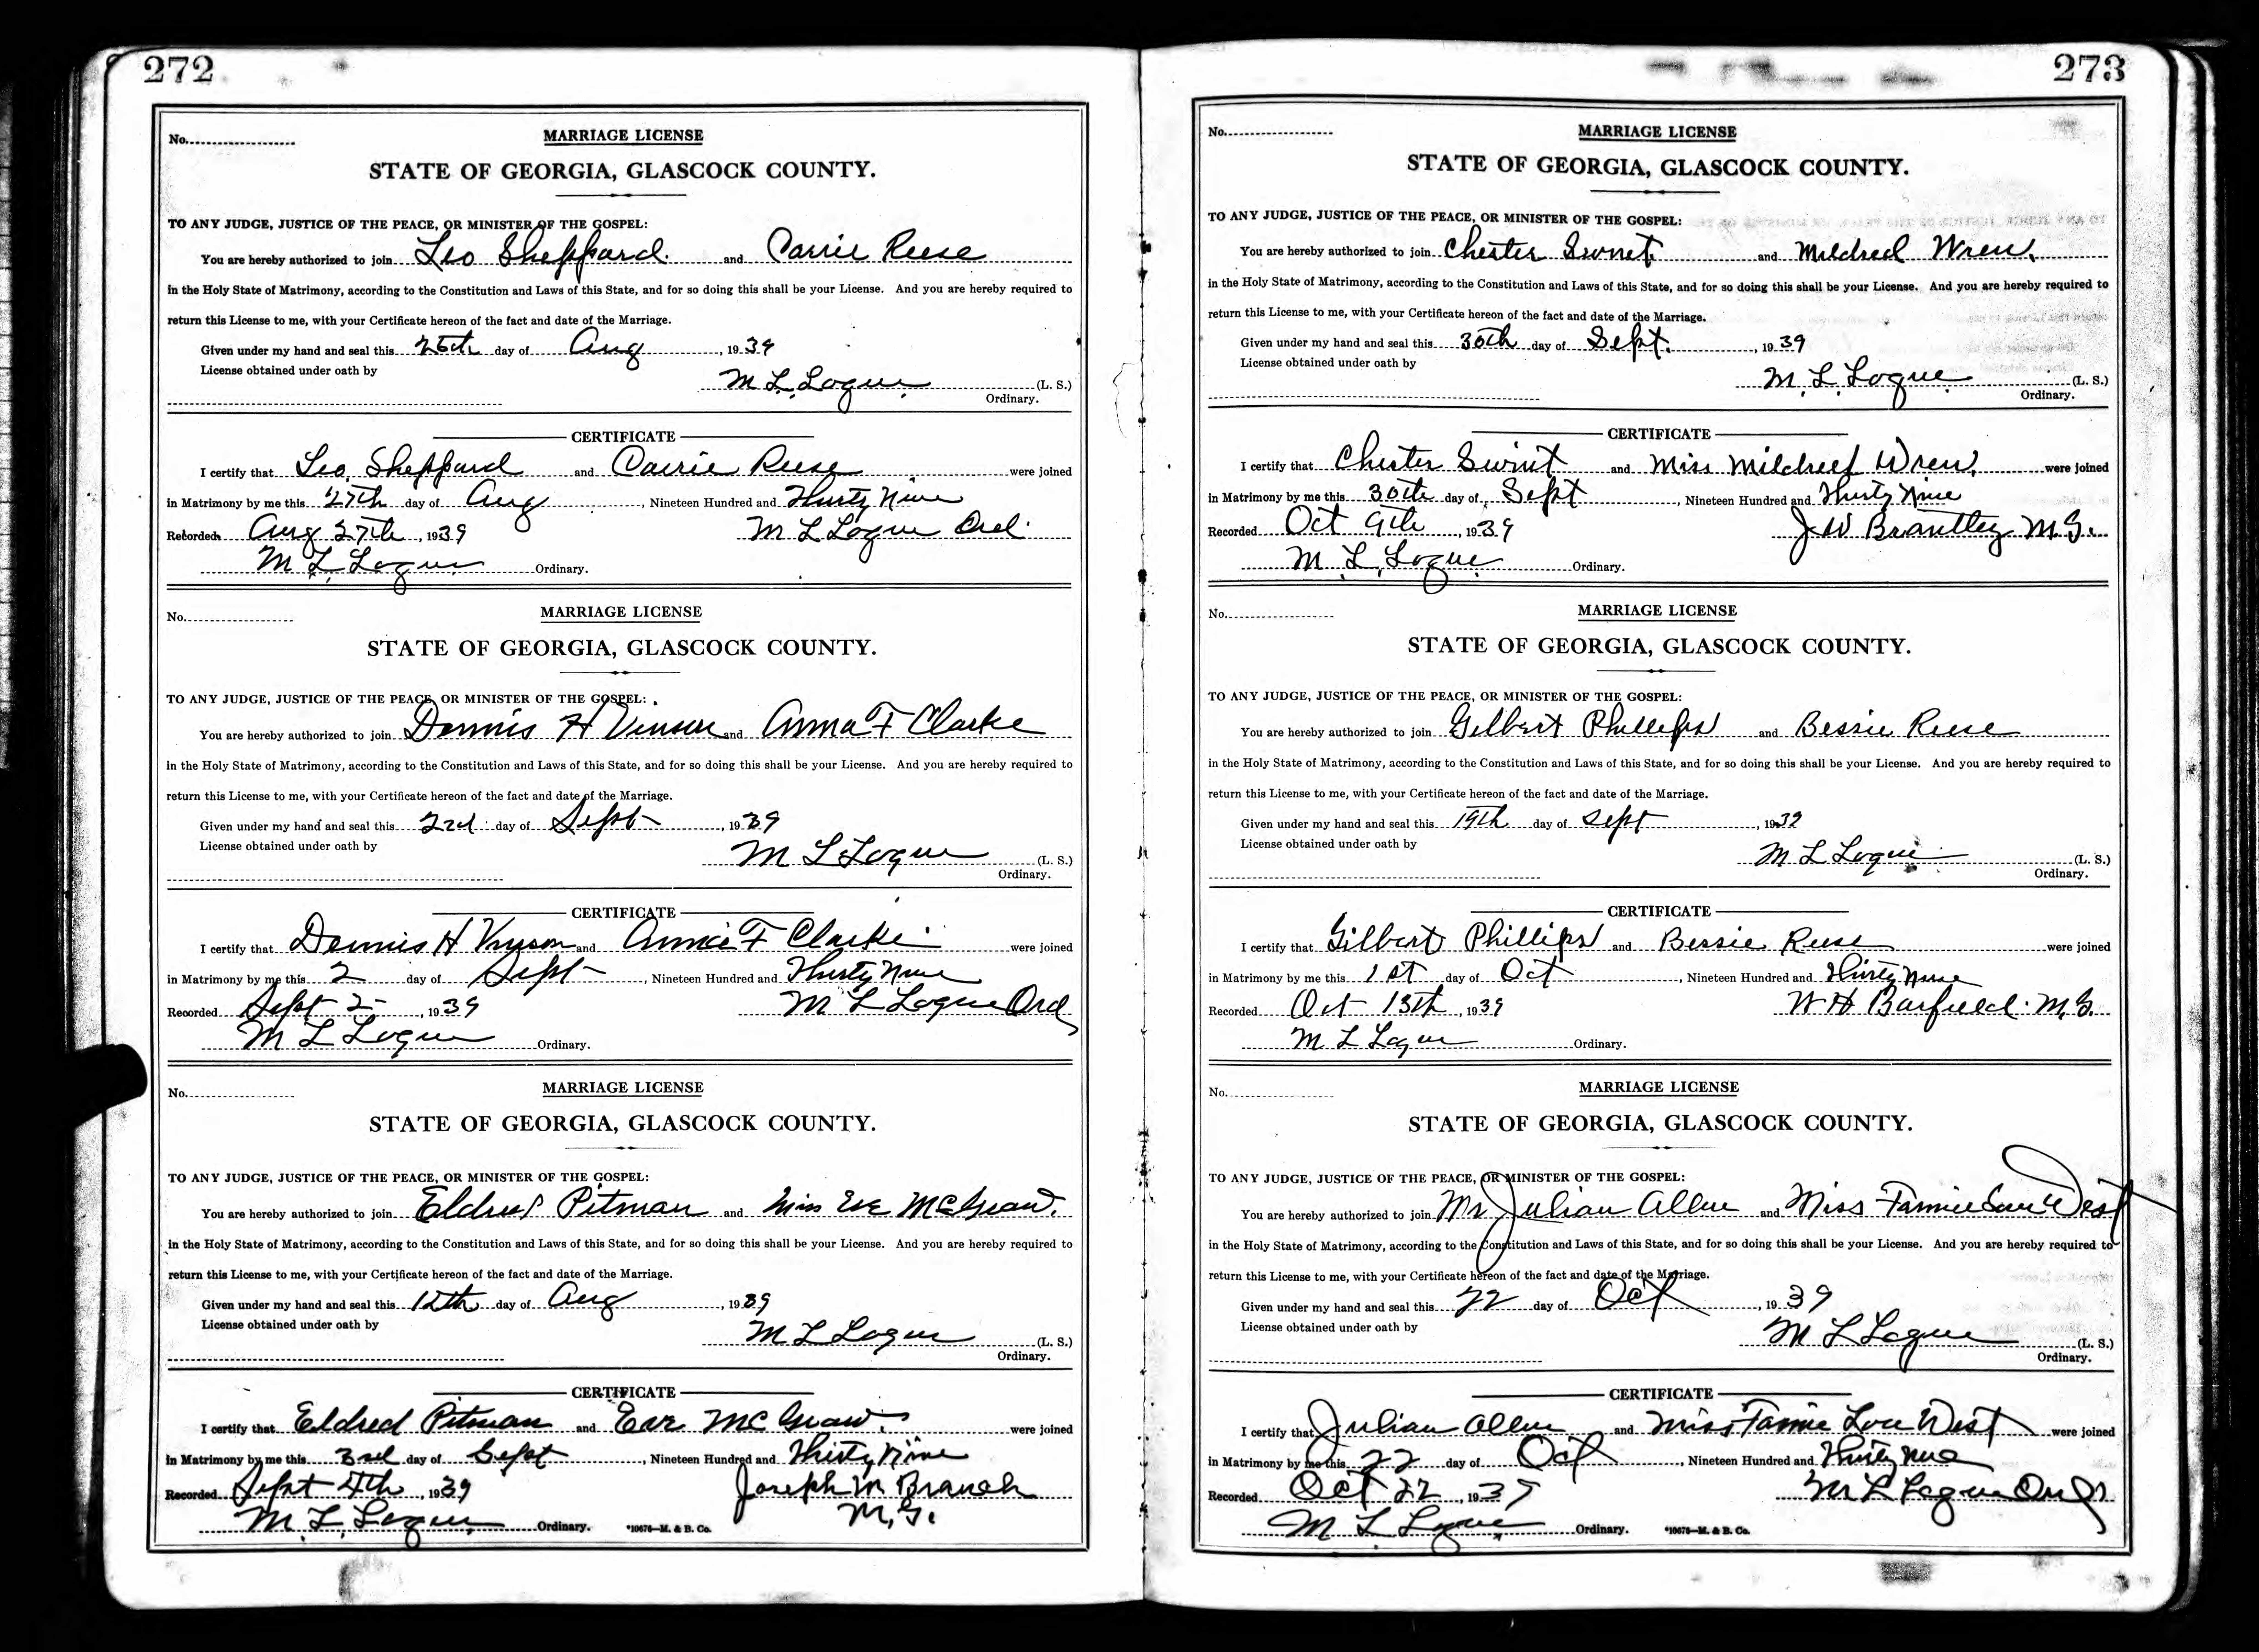 272
No.
MARRIAGE LICENSE
STATE OF GEORGIA, GLASCOCK COUNTY.
TO ANY JUDGE, JUSTICE OF THE PEACE, OR MINISTER OF THE GOSPEL:
You are hereby authorized to join Leo Sheppard and Carrie Reese
in the Holy State of Matrimony, according to the Constitution and Laws of this State, and for so doing this shall be your License. And you are hereby required to
return this License to me, with your Certificate hereon of the fact and date of the Marriage.
Given under my hand and seal this day of Aug, 1939
License obtained under oath by
M. L. Logue (L. S.)
Ordinary.
CERTIFICATE
I certify that Leo Sheppard and Carrie Reese were joined
in Matrimony by me this 27th day of Aug, Nineteen Hundred and Thirty Nine
Recorded Aug 27th, 1939 M L Logue Ord.
M. L. Logue Ordinary.
No.
MARRIAGE LICENSE
STATE OF GEORGIA, GLASCOCK COUNTY.
TO ANY JUDGE, JUSTICE OF THE PEACE, OR MINISTER OF THE GOSPEL:
You are hereby authorized to join Dennis H Vinson and Anna F Clarke
in the Holy State of Matrimony, according to the Constitution and Laws of this State, and for so doing this shall be your License. And you are hereby required to
return this License to me, with your Certificate hereon of the fact and date of the Marriage.
Given under my hand and seal this 2nd day of Sept, 1939
License obtained under oath by
M L Logue (L. S.)
Ordinary.
CERTIFICATE
I certify that Dennis H Vinson and Annie F Clarke were joined
in Matrimony by me this 2 day of Sept, Nineteen Hundred and Thirty Nine
Recorded Sept 2, 1939 M L Logue Ord
M L Logue Ordinary.
No.
MARRIAGE LICENSE
STATE OF GEORGIA, GLASCOCK COUNTY.
TO ANY JUDGE, JUSTICE OF THE PEACE, OR MINISTER OF THE GOSPEL:
You are hereby authorized to join Eldred Pitman and Miss Eve McGraw.
in the Holy State of Matrimony, according to the Constitution and Laws of this State, and for so doing this shall be your License. And you are hereby required to
return this License to me, with your Certificate hereon of the fact and date of the Marriage.
Given under my hand and seal this 12th day of Aug, 1939
License obtained under oath by
M L Logue (L. S.)
Ordinary.
CERTIFICATE
I certify that Eldred Pitman and Eve McGraw, were joined
in Matrimony by me this 3rd day of Sept, Nineteen Hundred and Thirty Nine
Recorded Sept 4th, 1939 Joseph M Branch
M. L. Logue Ordinary. *10676—M. & B. Co. M. G.
273
No.
MARRIAGE LICENSE
STATE OF GEORGIA, GLASCOCK COUNTY.
TO ANY JUDGE, JUSTICE OF THE PEACE, OR MINISTER OF THE GOSPEL:
You are hereby authorized to join Chester Swint and Mildred Wren.
in the Holy State of Matrimony, according to the Constitution and Laws of this State, and for so doing this shall be your License. And you are hereby required to
return this License to me, with your Certificate hereon of the fact and date of the Marriage.
Given under my hand and seal this 30th day of Sept., 1939
License obtained under oath by
M. L. Logue (L. S.)
Ordinary.
CERTIFICATE
I certify that Chester Swint and Miss Mildred Wren, were joined
in Matrimony by me this 30th day of Sept, Nineteen Hundred and Thirty Nine
Recorded Oct 9th, 1939 J W Brantley M. G.
M. L. Logue Ordinary.
No.
MARRIAGE LICENSE
STATE OF GEORGIA, GLASCOCK COUNTY.
TO ANY JUDGE, JUSTICE OF THE PEACE, OR MINISTER OF THE GOSPEL:
You are hereby authorized to join Gilbert Phillips and Bessie Reese
in the Holy State of Matrimony, according to the Constitution and Laws of this State, and for so doing this shall be your License. And you are hereby required to
return this License to me, with your Certificate hereon of the fact and date of the Marriage.
Given under my hand and seal this 19th day of Sept, 1939
License obtained under oath by
M L Logue (L. S.)
Ordinary.
CERTIFICATE
I certify that Gilbert Phillips and Bessie Reese were joined
in Matrimony by me this 1st day of Oct, Nineteen Hundred and Thirty Nine
Recorded Oct 13th, 1939 W H Barfield. M. G.
M L Logue Ordinary.
No.
MARRIAGE LICENSE
STATE OF GEORGIA, GLASCOCK COUNTY.
TO ANY JUDGE, JUSTICE OF THE PEACE, OR MINISTER OF THE GOSPEL:
You are hereby authorized to join Mr Julian Allen and Miss Lou West
in the Holy State of Matrimony, according to the Constitution and Laws of this State, and for so doing this shall be your License. And you are hereby required to
return this License to me, with your Certificate hereon of the fact and date of the Marriage.
Given under my hand and seal this 22 day of Oct, 1939
License obtained under oath by
M L Logue (L. S.)
Ordinary.
CERTIFICATE
I certify that Julian Allen and Miss Lou West were joined
in Matrimony by me this 22 day of Oct, Nineteen Hundred and Thirty Nine
Recorded Oct 22, 1939 M L Logue Ord
M L Logue Ordinary. *10676—M. & B. Co.